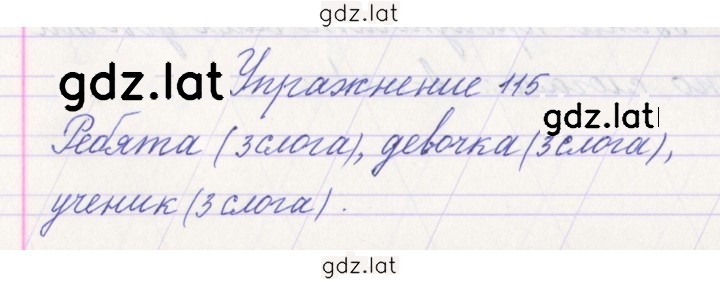 gdz.lat
gdz.lat Упражнение 115
gdz.lat
Ребята (3 слога), девочка (3 слога),
ученик (3 слога).
gdz.lat